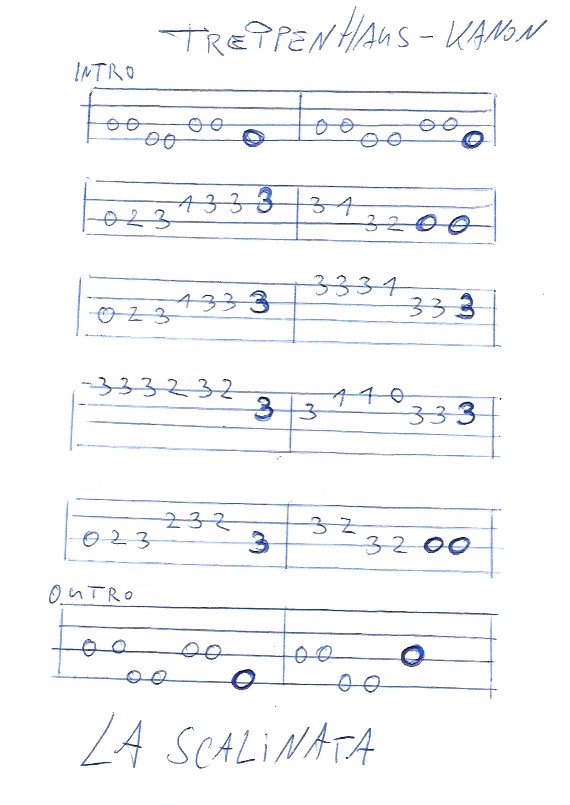 TREPPENHAUS - KANON
INTRO
0 0 0 0 0 0 0 0 0 0 0 0 0 0
0 2 3 1 3 3 3 3 1 3 2 0 0
0 2 3 1 3 3 3 3 3 3 1 3 3 3
3 3 3 2 3 2 3 3 1 1 0 3 3 3
0 2 3 2 3 2 3 3 2 3 2 0 0
OUTRO
0 0 0 0 0 0 0 0 0 0 0 0
LA SCALINATA